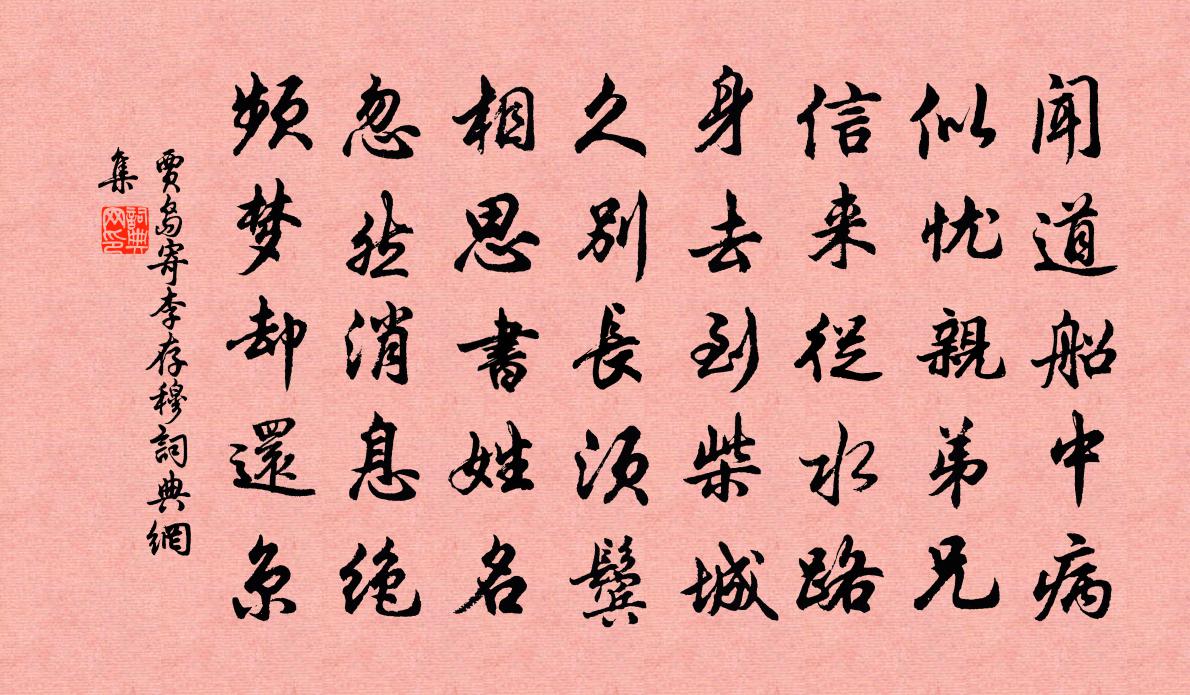 闻道船中病
似忧親弟兄
信来從水路
身去到柴城
久别長须鬓
相思書姓名
忽然消息绝
频梦却還京
賈岛寄李存穆詞典網
集
詞典
网印